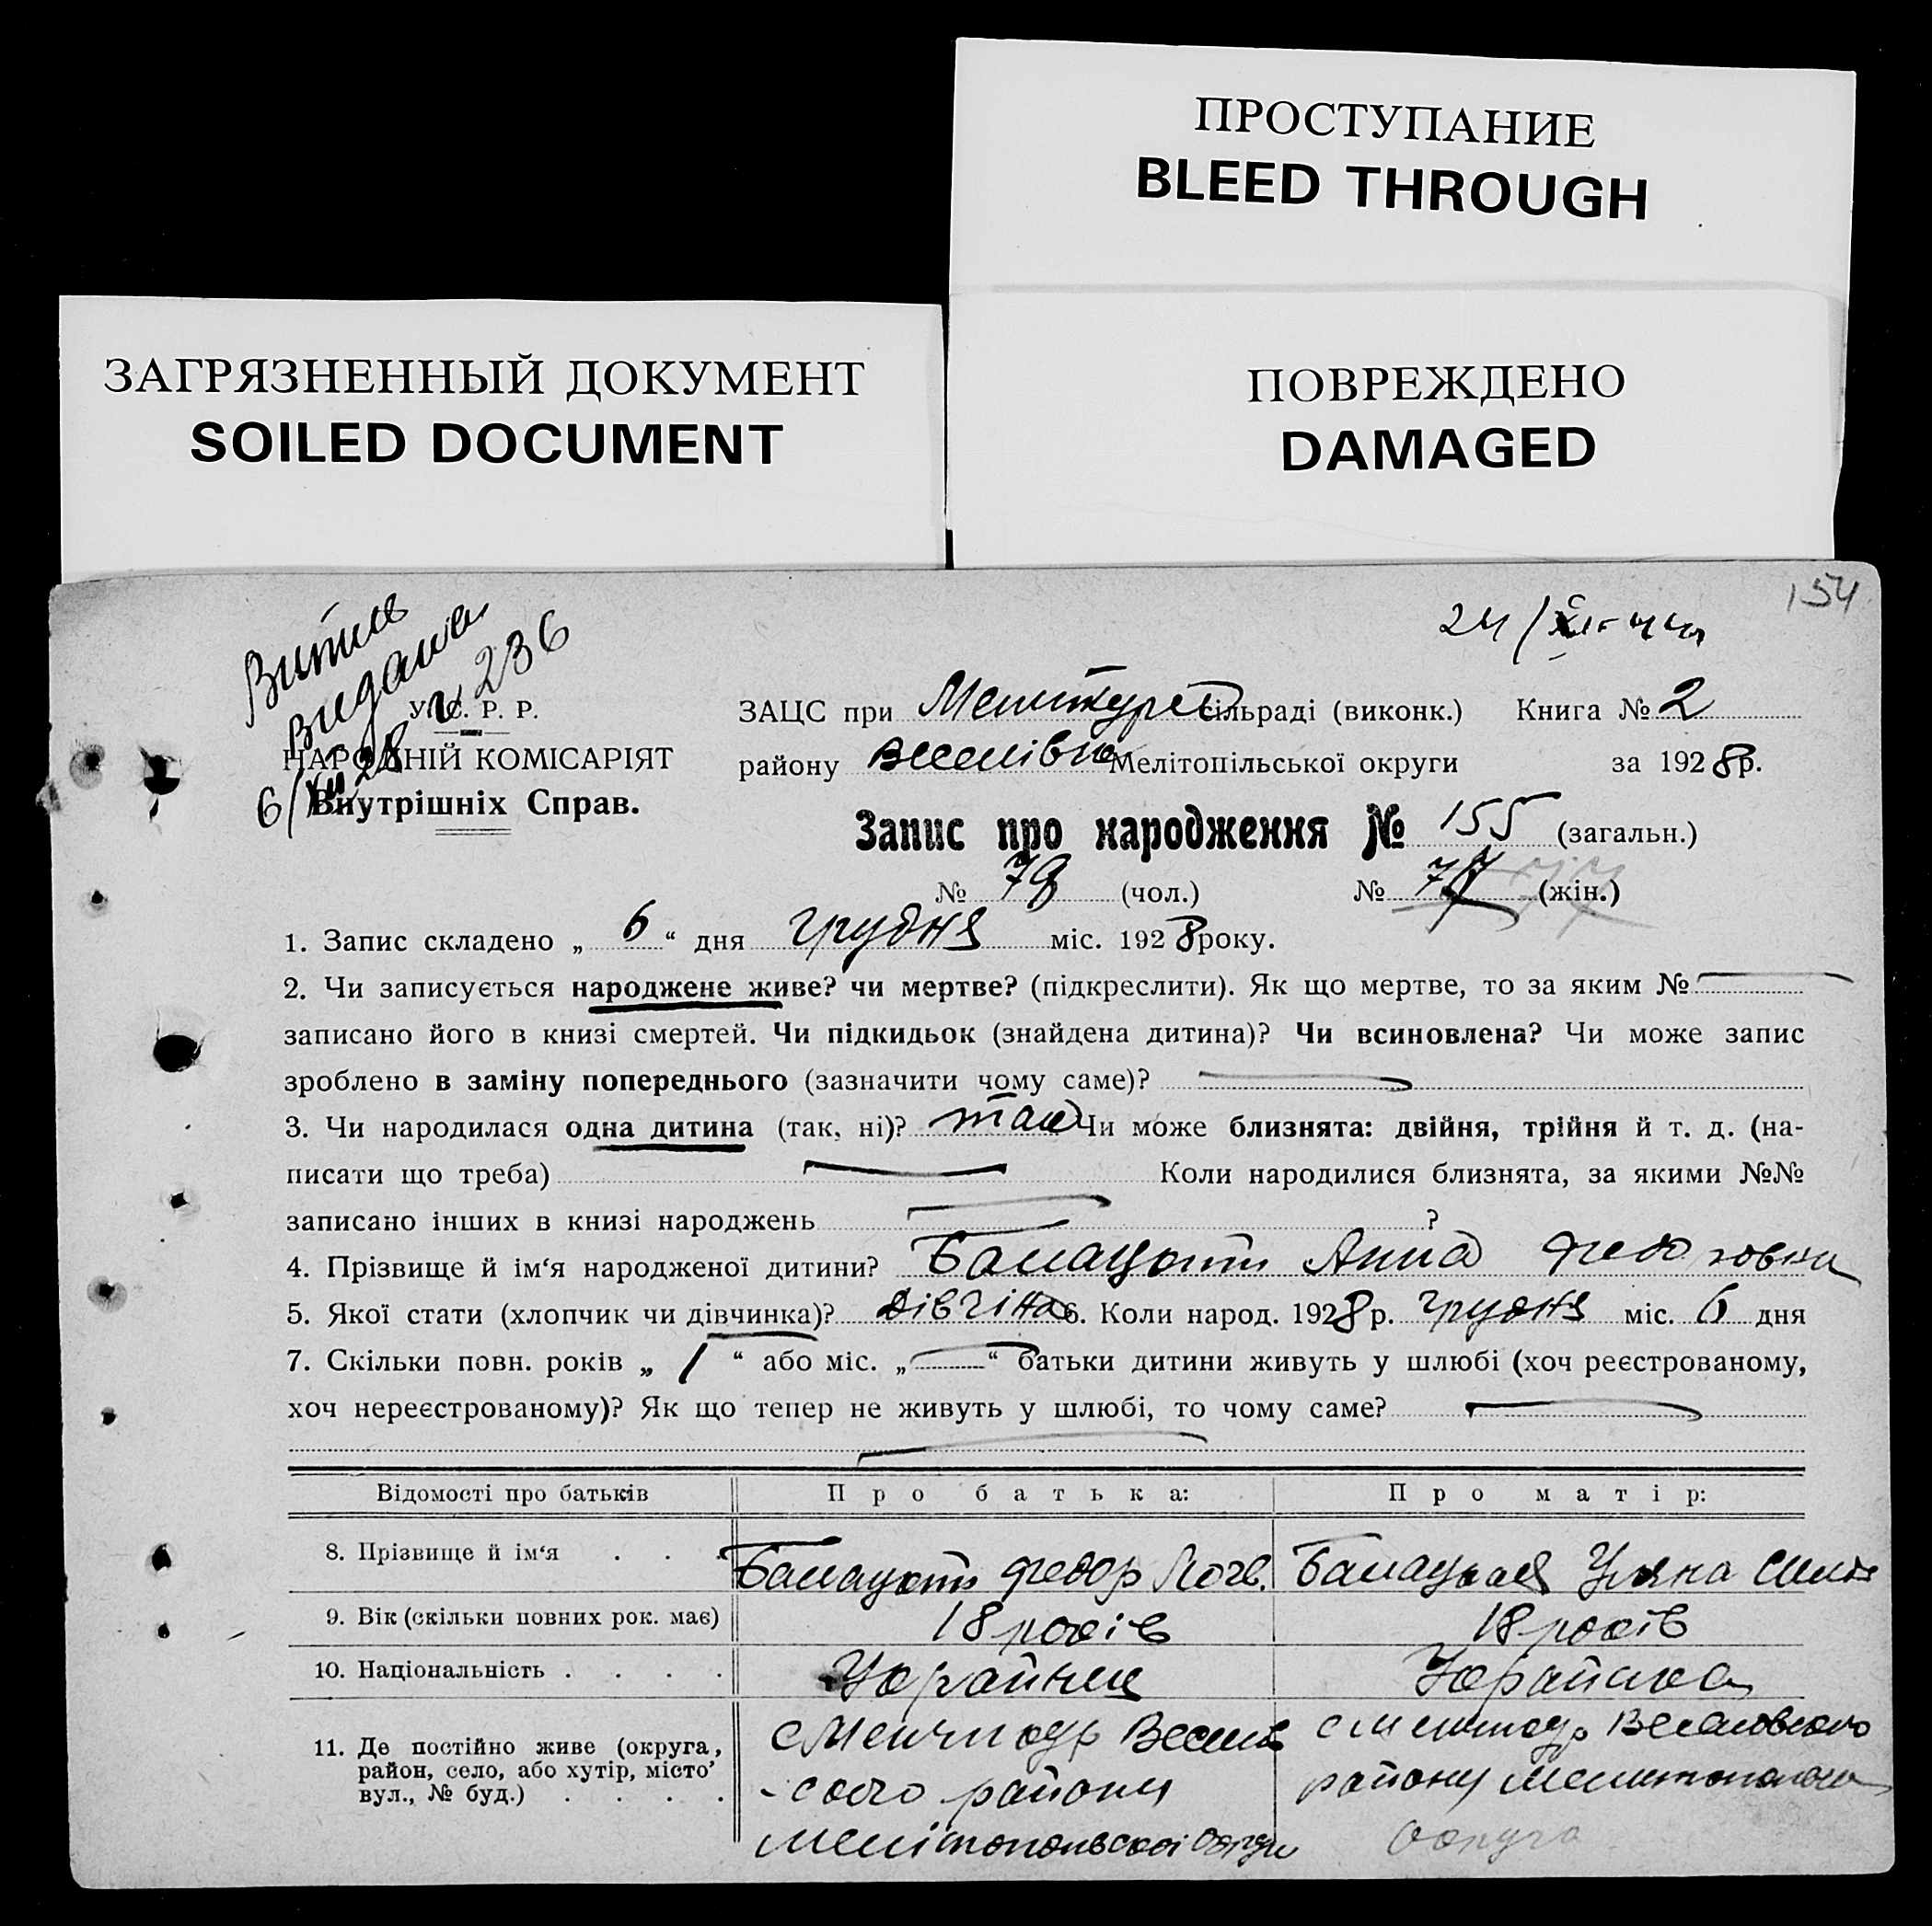 ПРОСТУПАНИЕ
BLEED THROUGH
ЗАГРЯЗНЕННЫЙ ДОКУМЕНТ
SOILED DOCUMENT
ПОВРЕЖДЕНО
DAMAGED
154
видана
№ 236
6/XII 28
У. С. Р. Р.
НАРОДНІЙ КОМІСАРІЯТ
Внутрішніх Справ.
ЗАЦС при сільраді (виконк.) Книга № 2
району Мелітопільської округи за 1928 р.
Запис про народження № 155 (загальн.)
№ 78 (чол.) № 77 (жін.)
1. Запис складено „ 6 “ дня грудня міс. 1928 року.
2. Чи записується народжене живе? чи мертве? (підкреслити). Як що мертве, то за яким №
записано його в книзі смертей. Чи підкидьок (знайдена дитина)? Чи всиновлена? Чи може запис
зроблено в заміну попереднього (зазначити чому саме)?
3. Чи народилася одна дитина (так, ні)? так Чи може близнята: двійня, трійня й т. д. (на-
писати що треба) Коли народилися близнята, за якими №№
записано інших в книзі народжень ?
4. Прізвище й ім‘я народженої дитини? Анна
5. Якої стати (хлопчик чи дівчинка)? дівчіна 6. Коли народ. 1928 р. грудня міс. 6 дня
7. Скільки повн. років „ 1 “ або міс. „ “ батьки дитини живуть у шлюбі (хоч реєстрованому,
хоч нереєстрованому)? Як що тепер не живуть у шлюбі, то чому саме?
Відомості про батьків Про батька: Про матір:
8. Прізвище й ім‘я . . . Федор
9. Вік (скільки повних рок. має) 18 років 18 років
10. Національність . . . . Українец Українка
11. Де постійно живе (округа,
район, село, або хутір, місто
вул., № буд.) . . . .
ского району району
Мелітопольскоі Округи
Округа